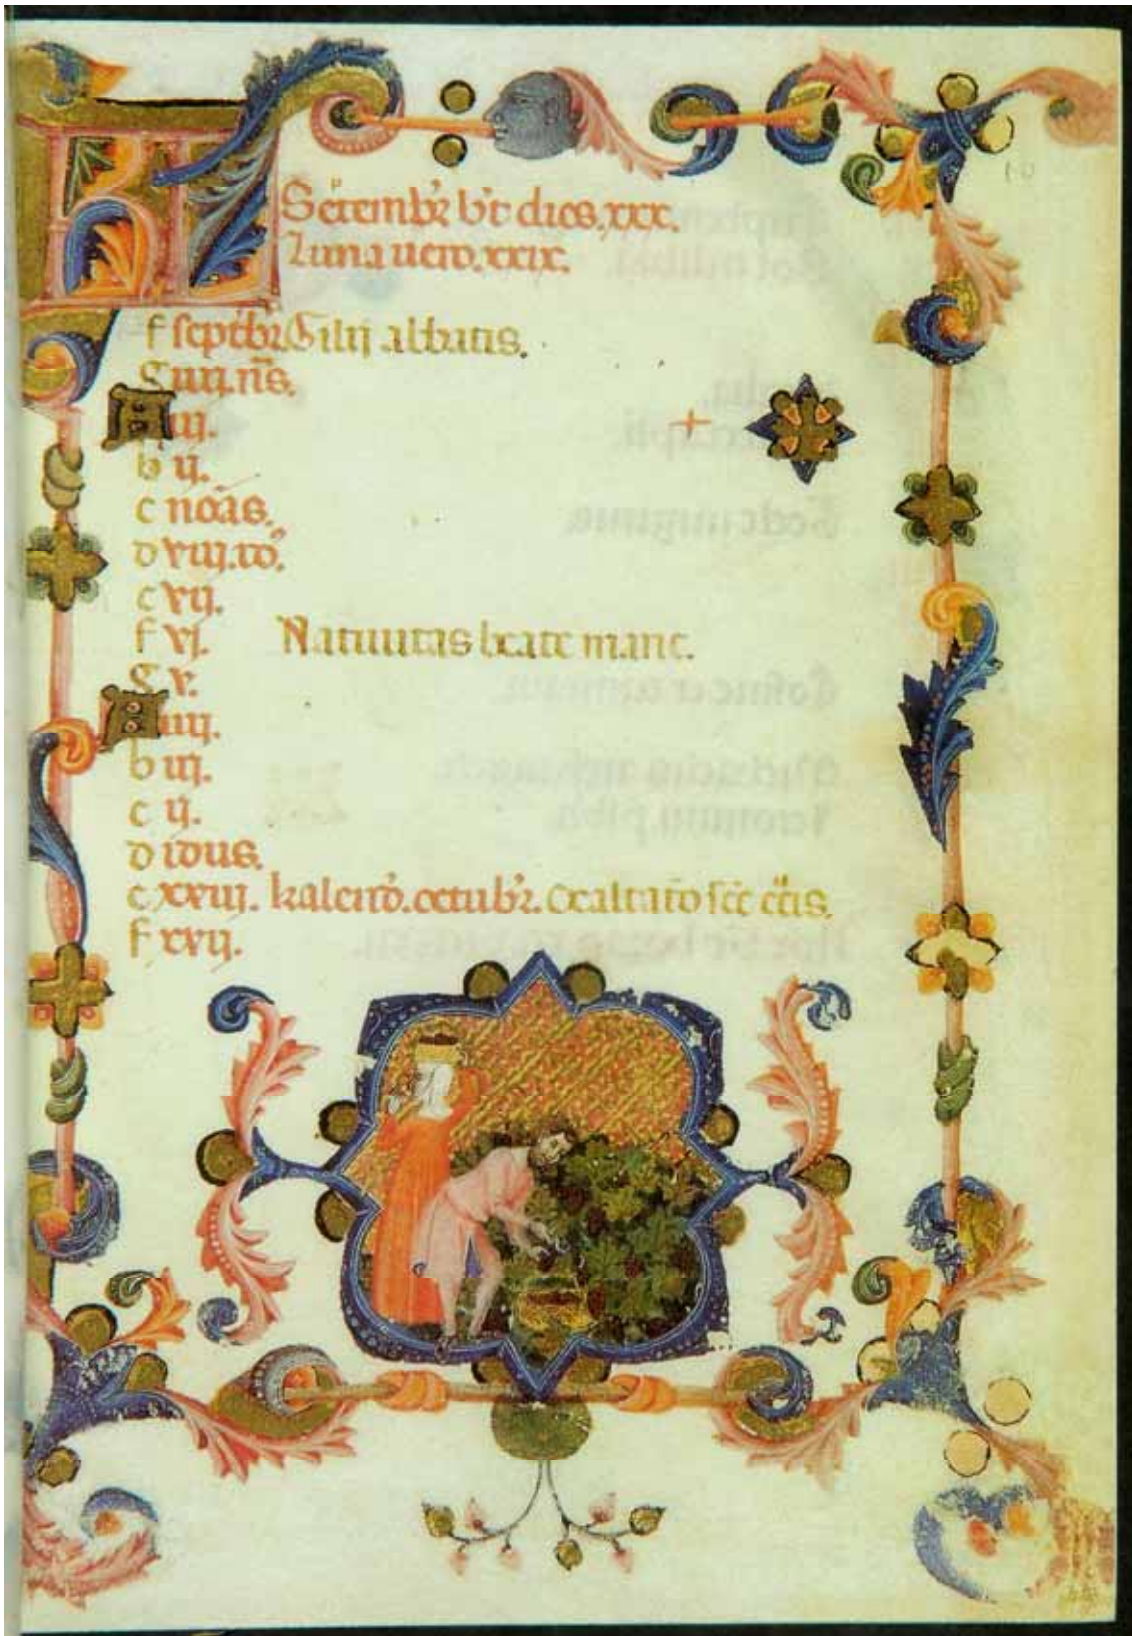 KL
Setembr' b't dies.xxx.
Luna uero.xxix.
f septēbr' Gilij abbatis.
G iiij.nōs.
A iij.
b ij.
c nōas.
d viij.id'.
e vij.
f vj. Natiuitas beate marie.
G v.
A iiij.
b iij.
c ij.
d idus.
e xviij. kalend'.octubr'. Exaltatio sce c̄cis.
f xvij.